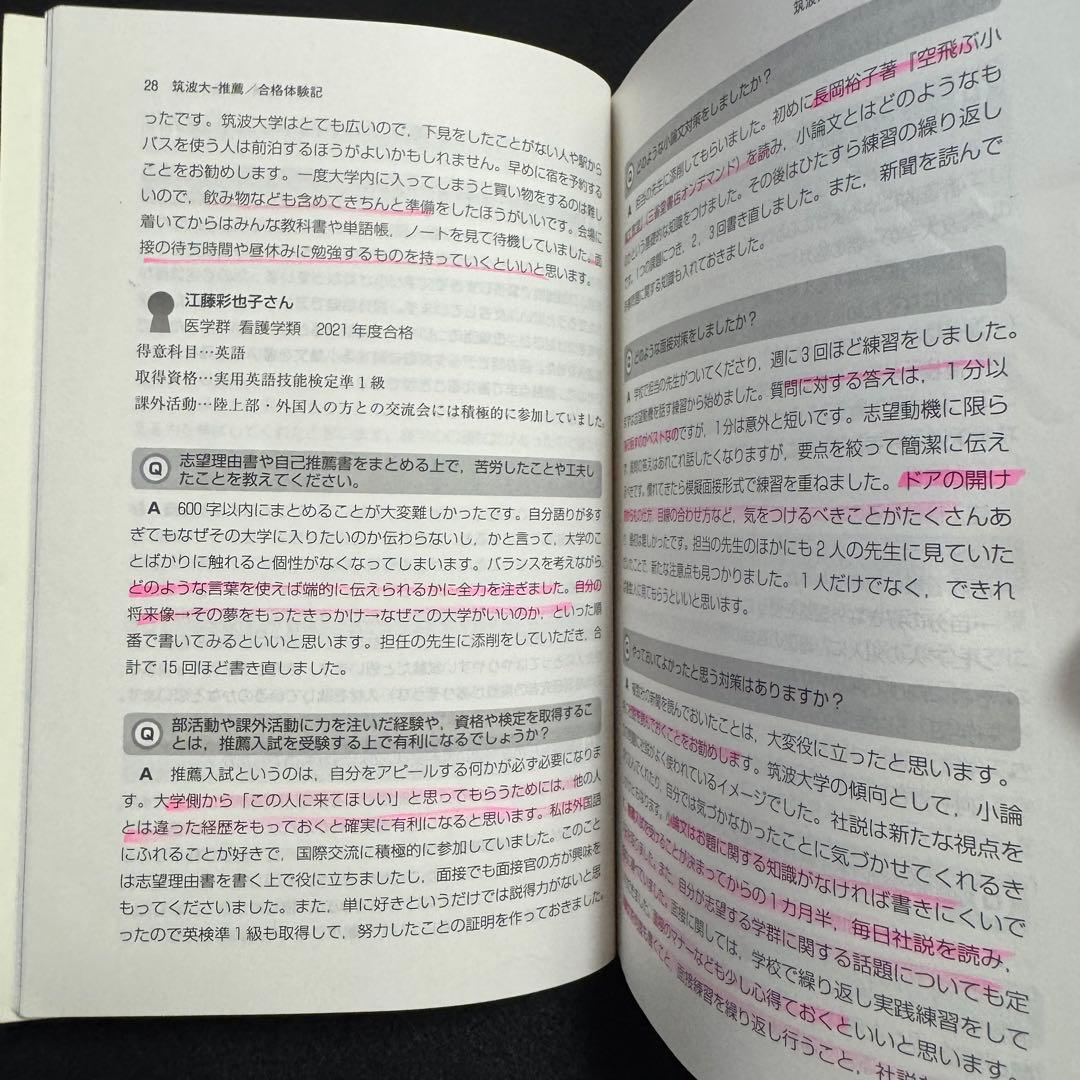 28 筑波大-推薦／合格体験記
ったです。筑波大学はとても広いので，下見をしたことがない人や駅から
バスを使う人は前泊するほうがよいかもしれません。早めに宿を予約する
ことをお勧めします。一度大学内に入ってしまうと買い物をするのは難し
いので，飲み物なども含めてきちんと準備をしたほうがいいです。会場に
着いてからはみんな教科書や単語帳，ノートを見て待機していました。面
接の待ち時間や昼休みに勉強するものを持っていくといいと思います。
江藤彩也子さん
医学群 看護学類 2021年度合格
得意科目…英語
取得資格…実用英語技能検定準1級
課外活動…陸上部・外国人の方との交流会には積極的に参加していました。
Q 志望理由書や自己推薦書をまとめる上で，苦労したことや工夫し
たことを教えてください。
A 600字以内にまとめることが大変難しかったです。自分語りが多す
ぎてもなぜその大学に入りたいのか伝わらないし，かと言って，大学のこ
とばかりに触れると個性がなくなってしまいます。バランスを考えながら，
どのような言葉を使えば端的に伝えられるかに全力を注ぎました。自分の
将来像→その夢をもったきっかけ→なぜこの大学がいいのか，といった順
番で書いてみるといいと思います。担任の先生に添削をしていただき，合
計で15回ほど書き直しました。
Q 部活動や課外活動に力を注いだ経験や，資格や検定を取得するこ
とは，推薦入試を受験する上で有利になるでしょうか？
A 推薦入試というのは，自分をアピールする何かが必ず必要になりま
す。大学側から「この人に来てほしい」と思ってもらうためには，他の人
とは違った経歴をもっておくと確実に有利になると思います。私は外国語
にふれることが好きで，国際交流に積極的に参加していました。このこと
は志望理由書を書く上で役に立ちましたし，面接でも面接官の方が興味を
もってくださいました。また，単に好きというだけでは説得力がないと思
ったので英検準1級も取得して，努力したことの証明を作っておきました。
筑波
Q どのような小論文対策をしましたか？
A 担当の先生に添削してもらいました。初めに長岡裕子著『空飛ぶ小
（三省堂書店オンデマンド）を読み，小論文とはどのようなも
のかという基礎的な知識をつけました。その後はひたすら練習の繰り返し
です。1つの課題につき，2，3回書き直しました。また，新聞を読んで
に関する知識も入れておきました。
Q どのような面接対策をしましたか？
A 学校で担当の先生がついてくださり，週に3回ほど練習をしました。
志望動機を話す練習から始めました。質問に対する答えは，1分以
ベストなのですが，1分は意外と短いです。志望動機に限ら
ず，質問の答えはあれこれ話したくなりますが，要点を絞って簡潔に伝え
るべきです。慣れてきたら模擬面接形式で練習を重ねました。ドアの開け
仕方，目線の合わせ方など，気をつけるべきことがたくさんあ
り，最初は難しかったです。担当の先生のほかにも2人の先生に見ていた
だいたことで，新たな注意点も見つかりました。1人だけでなく，できれ
人に見てもらうといいと思います。
Q やっておいてよかったと思う対策はありますか？
A 新聞を読んでおいたことは，大変役に立ったと思います。
読んでおくことをお勧めします。筑波大学の傾向として，小論
社説がよく使われているイメージでした。社説は新たな視点を
くれたり，自分では気づかなかったことに気づかせてくれるき
あります。小論文はお題に関する知識がなければ書きにくいで
受けることが決まってからの1カ月半，毎日社説を読み，
ました。また，自分が志望する学群に関する話題についても定
いました。面接に関しては，学校で繰り返し実践練習をして
マナーなども少し心得ておくといいと思います。
書くこと，面接練習を繰り返し行うこと，社説